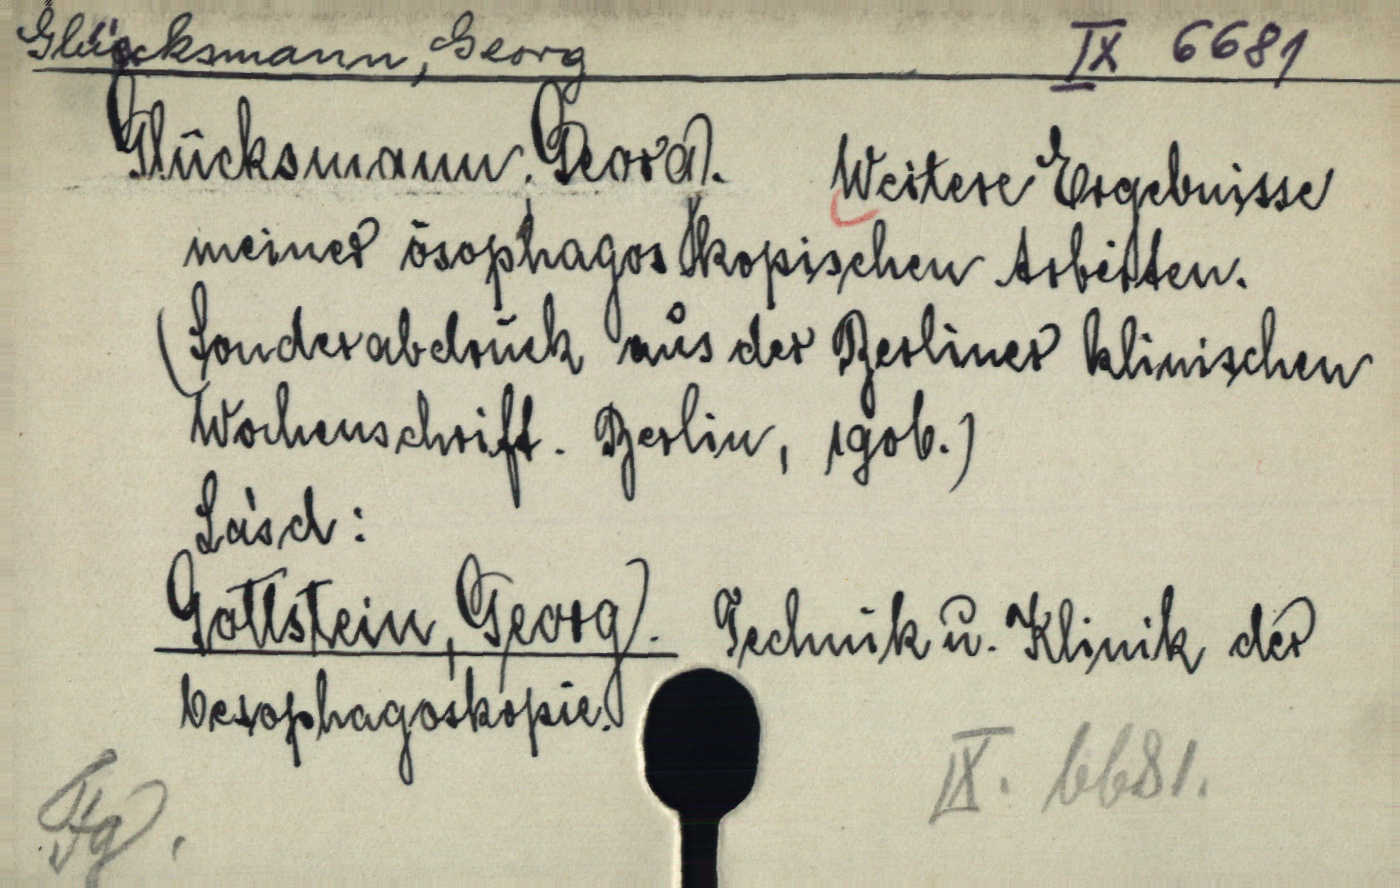 Glücksmann, Georg IX 6681
Glücksmann, Georg). Weitere Ergebnisse
meiner ösophagoskopischen Arbeiten.
(Sonderabdruck aus der Berliner klinischen
Wochenschrift. Berlin, 1906.)
Lásd:
Gottstein, Georg). Technik u. Klinik der
Oesophagoskopie.
IX. 6681.
Fg.